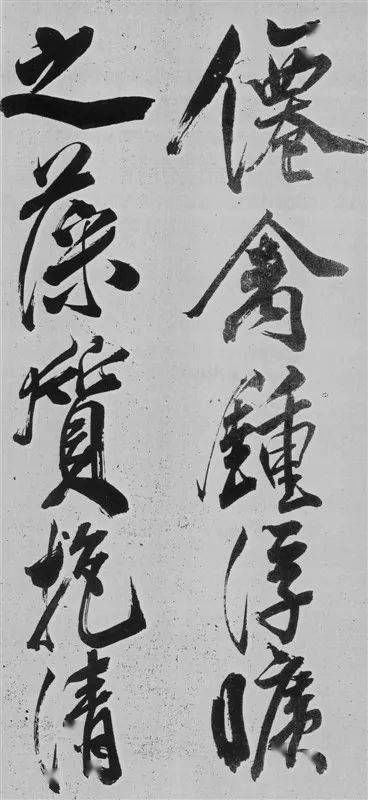 僊禽鍾浮曠
之藻質抱清